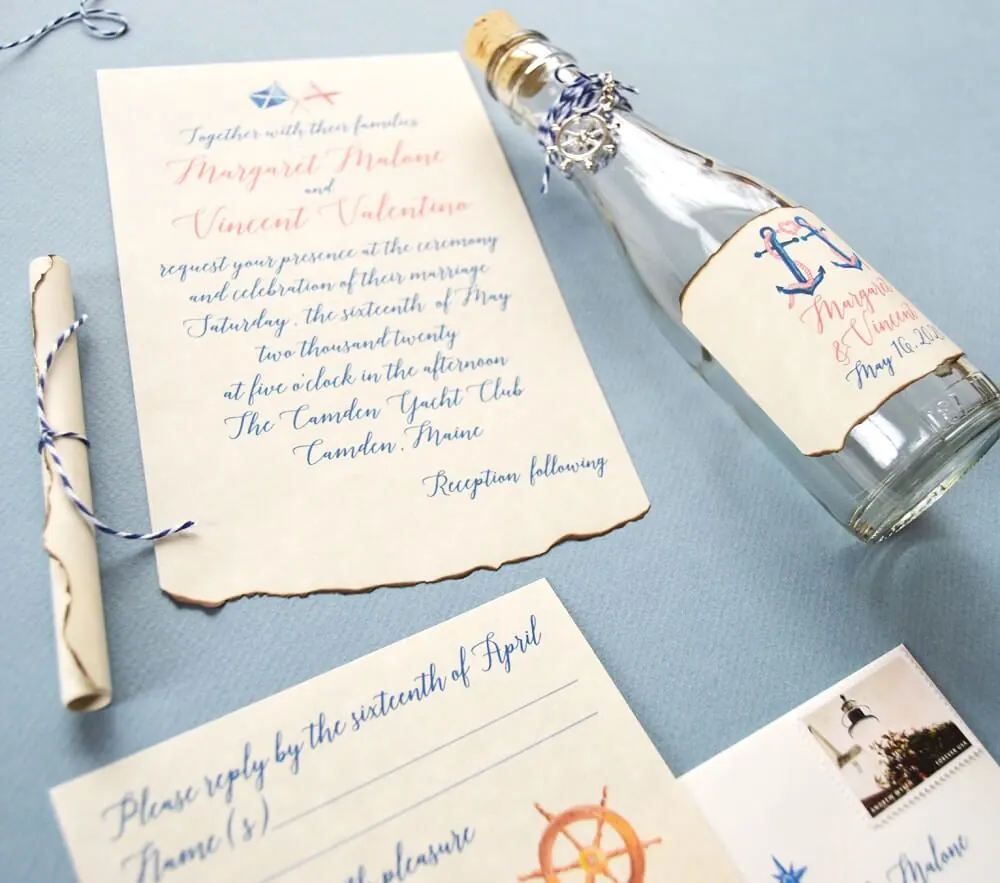 Together with their families
Margaret Malone
and
Vincent Valentino
request your presence at the ceremony
and celebration of their marriage
Saturday, the sixteenth of May
two thousand twenty
at five o'clock in the afternoon
The Camden Yacht Club
Camden, Maine
Reception following
Margaret
& Vincent
May 16, 202
Please reply by the sixteenth of April
Name(s)
pleasure
ANDREW WYETH
FOREVER USA
Malone